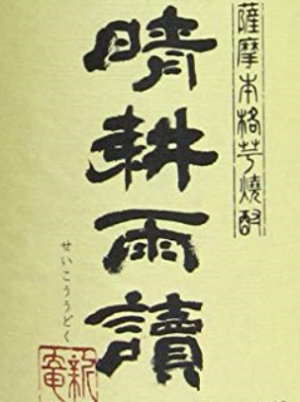 薩摩本格芋燒酎
晴耕雨讀
せいこううどく
新菴